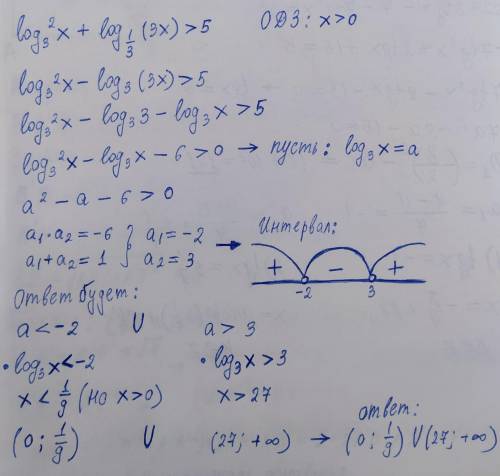 log₃²x + log_{1/3}(3x) > 5 ОДЗ: x>0
log₃²x − log₃(3x) > 5
log₃²x − log₃3 − log₃x > 5
log₃²x − log₃x − 6 > 0 → пусть: log₃x = a
a² − a − 6 > 0
a₁·a₂ = −6 } a₁ = −2 → Интервал:
a₁+a₂ = 1 } a₂ = 3
+ − +
−2 3
Ответ будет:
a < −2 U a > 3
• log₃x < −2 • log₃x > 3
x < 1/9 (но x>0) x > 27
(0; 1/9) U (27; +∞) → ответ:
(0; 1/9) U (27; +∞)